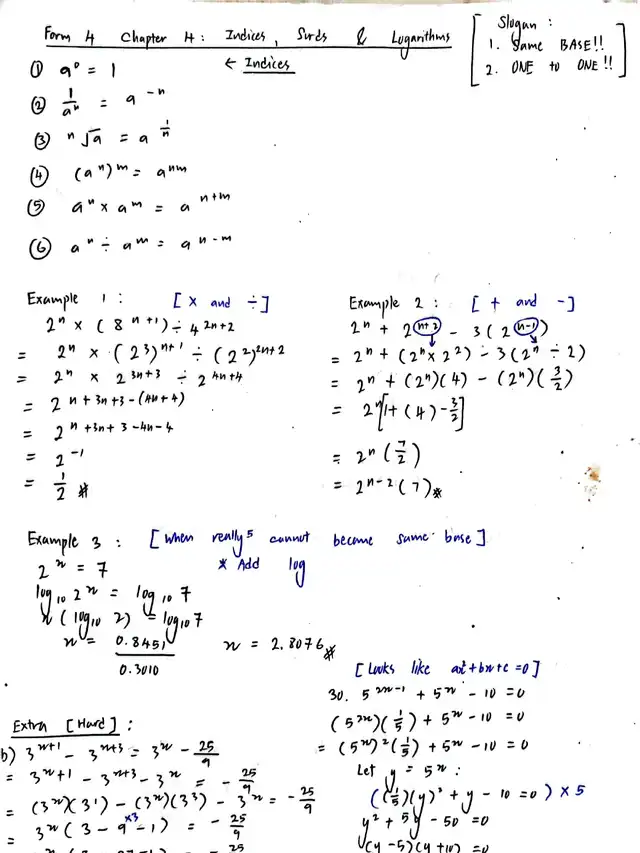 Form 4 Chapter 4: Indices, Surds & Logarithms
[ Slogan :
1. Same BASE!!
2. ONE to ONE!! ]
← Indices
① a⁰ = 1
② 1/aⁿ = a⁻ⁿ
③ ⁿ√a = a^(1/n)
④ (aⁿ)ᵐ = aⁿᵐ
⑤ aⁿ × aᵐ = aⁿ⁺ᵐ
⑥ aⁿ ÷ aᵐ = aⁿ⁻ᵐ
Example 1 : [ × and ÷ ]
2ⁿ × (8ⁿ⁺¹) ÷ 4²ⁿ⁺²
= 2ⁿ × (2³)ⁿ⁺¹ ÷ (2²)²ⁿ⁺²
= 2ⁿ × 2³ⁿ⁺³ ÷ 2⁴ⁿ⁺⁴
= 2^(n+3n+3-(4n+4))
= 2^(n+3n+3-4n-4)
= 2⁻¹
= 1/2 *
Example 2 : [ + and - ]
2ⁿ + 2ⁿ⁺² - 3(2ⁿ⁻¹)
= 2ⁿ + (2ⁿ × 2²) - 3(2ⁿ ÷ 2)
= 2ⁿ + (2ⁿ)(4) - (2ⁿ)(3/2)
= 2ⁿ[1 + (4) - 3/2]
= 2ⁿ (7/2)
= 2ⁿ⁻²(7) *
Example 3 : [ When really cannot become same base ]
2ˣ = 7 * Add log
log₁₀ 2ˣ = log₁₀ 7
x (log₁₀ 2) = log₁₀ 7
x = 0.8451/0.3010 x = 2.8076 *
[ Looks like ax²+bx+c=0 ]
30. 5²ˣ⁻¹ + 5ˣ - 10 = 0
(5²ˣ)(1/5) + 5ˣ - 10 = 0
= (5ˣ)²(1/5) + 5ˣ - 10 = 0
Let y = 5ˣ :
((1/5)(y)² + y - 10 = 0) × 5
y² + 5y - 50 = 0
(y-5)(y+10) = 0
Extra [Hard] :
b) 3ˣ⁺¹ - 3ˣ⁺³ = 3ˣ - 25/9
= 3ˣ⁺¹ - 3ˣ⁺³ - 3ˣ = - 25/9
= (3ˣ)(3¹) - (3ˣ)(3³) - 3ˣ = - 25/9
= 3ˣ(3 - 9 ×3 - 1) = - 25/9